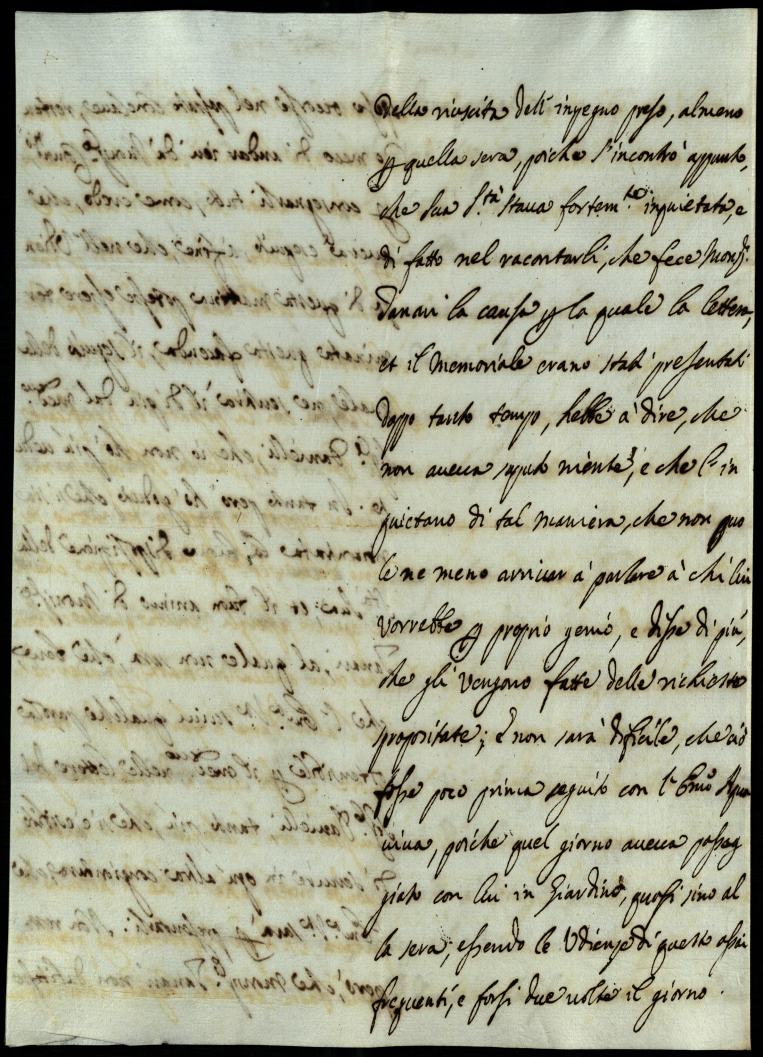 della riuscita dell'impegno preso, almeno
p quella sera, poiche s'incontrò appunto,
che Sua S.tà staua fortem.te inquietata, e
di fatto nel racontarli, che fece Mons.r
Tanari la causa p la quale la lettera,
et il Memoriale erano stati presentati
doppo tanto tempo, hebbe à dire, che
non aueua saputo niente, e che l'in
quietano di tal maniera, che non puo
le ne meno arriuar à parlare à chi lui
vorrebbe p proprio genio, e disse di più,
che gli vengono fatte delle richieste
spropositate; E non sarà dificile, che ciò
fosse poco prima seguito con l'Emo Aqua
uiua, poiche quel giorno aueua passeg
giato con lui in Giardino, quasi sino al
la sera, essendo le Udienze di questo assai
frequenti, e forsi due uolte il giorno.